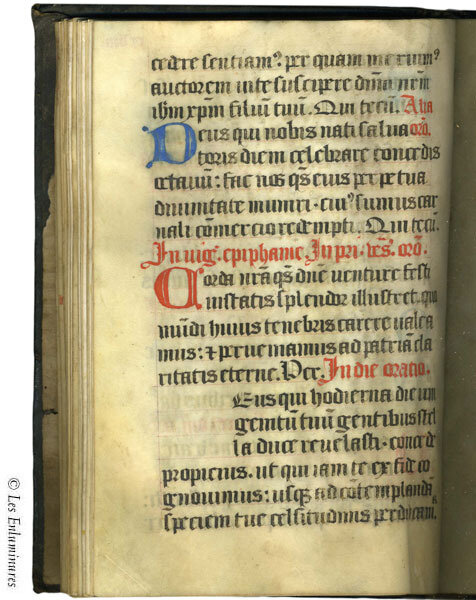 cedere sentiam9. per quam meruim9
auctorem uite suscipere dnm nrm
ihm xpm filiū tuū. Qui tecū. Alia
Deus qui nobis nati salua orō.
toris diem celebrare concedis
octauū: fac nos qs eius perpetua
diuinitate muniri. cui9 sumus car
nali cōmercio redempti. Qui tecū.
In uig. epiphanie. In pri. ūs. orō.
Corda nrā qs dne uenture festi
uitatis splendor illustret. quo
mūdi huius tenebris carere ualea
mus: ⁊ perueniamus ad patriā cla
ritatis eterne. Per. In die oratio.
Eus qui hodierna die uni
genitū tuū gentibus stel
la duce reuelasti. concede
propicius. ut qui iam te ex fide co
gnouimus: usqȝ ad cōtemplandā
speciem tue celsitudinis perducam.
© Les Enluminures